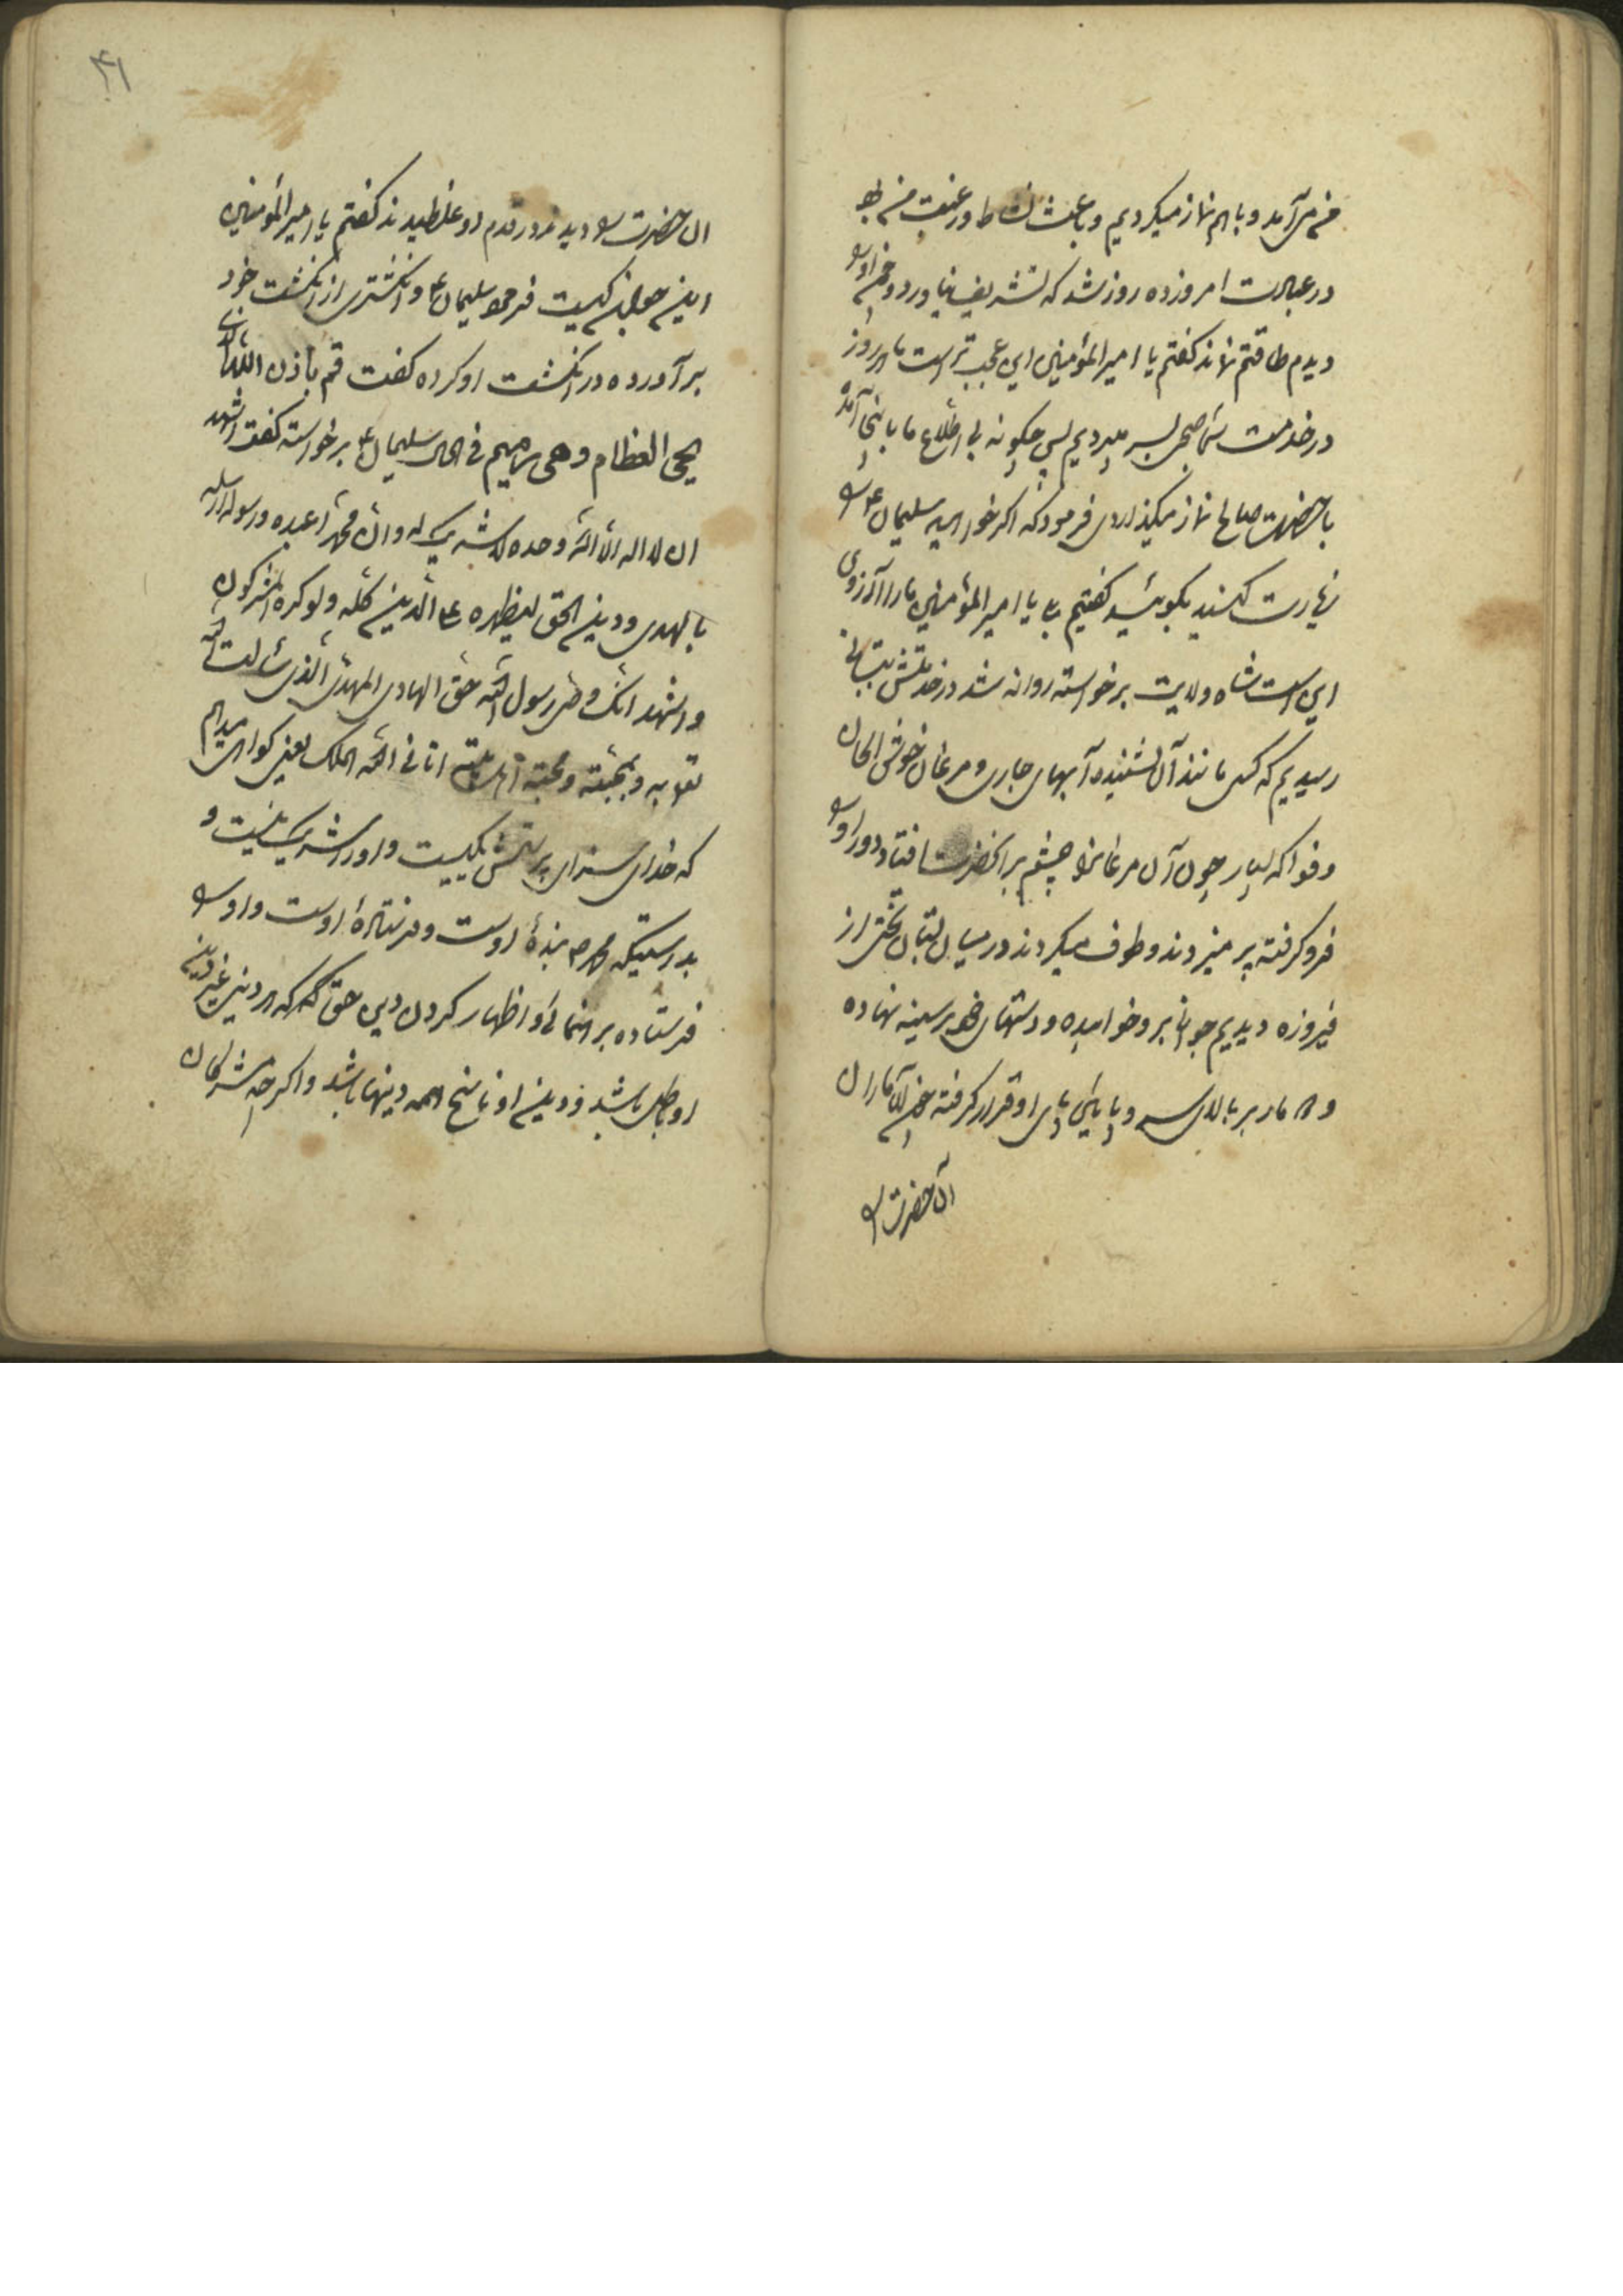 من می آمد و باهم نماز میکردیم و باعث نشاط و رغبت من بود
در عبادت امروز ده روز شد که تشریف نیاورد و چون او را
دیدم طاقتم نماند گفتم یا امیرالمؤمنین این عجب تر است ما هر روز
در خدمت شما صبح بسر میبردیم پس چگونه بی اطلاع ما باینجا آمده
با حضرت صالح نماز میگذاردی فرمود که اگر خواهید سلیمان ع را
زیارت کنید بگوئید گفتیم بلی یا امیرالمؤمنین ما را آرزوی
این است شاه ولایت برخواسته روانه شد در خدمتش ببستانی
رسیدیم که کسی مانند آن نشنیده آبهای جاری و مرغان خوش الحان
و فواکه بسیار چون آن مرغانرا چشم بر آنحضرت افتاد دور او را
فرو گرفته پر میزدند و طوف میکردند در میان بستان تختی از
فیروزه دیدیم جوانی بر او خوابیده و دستهای خود بر سینه نهاده
و دو مار بر بالای سر و پایین پای او قرار گرفته چون آن ماران
آن حضرت را
۴۱
آن حضرت را دیدند در قدم او غلطیدند گفتم یا امیرالمؤمنین
این جوان کیست فرمود سلیمان ع و انگشتری از انگشت خود
برآورده در انگشت او کرده گفت قم باذن الله الذی
یحیی العظام و هی رمیم فی الحال سلیمان ع برخواسته گفت اشهد
ان لا اله الا الله وحده لا شریک له و ان محمدا عبده و رسوله ارسله
بالهدی و دین الحق لیظهره علی الدین کله و لو کره المشرکون
و اشهد انک وصی رسول الله حق الهادی المهدی الذی سألت الله
به و بمحبته و محبة اهل بیته اتانی الله الملک یعنی گواهی میدهم
که خدای سزای پرستش یکیست و او را شریک نیست و
بدرستیکه محمد ص بندهٔ اوست و فرستادهٔ اوست و او را
فرستاده برهنمائی و اظهار کردن دین حق که هر دینی غیر دین
او باطل باشد و دین او ناسخ همه دینها باشد و اگر چه مشرکان